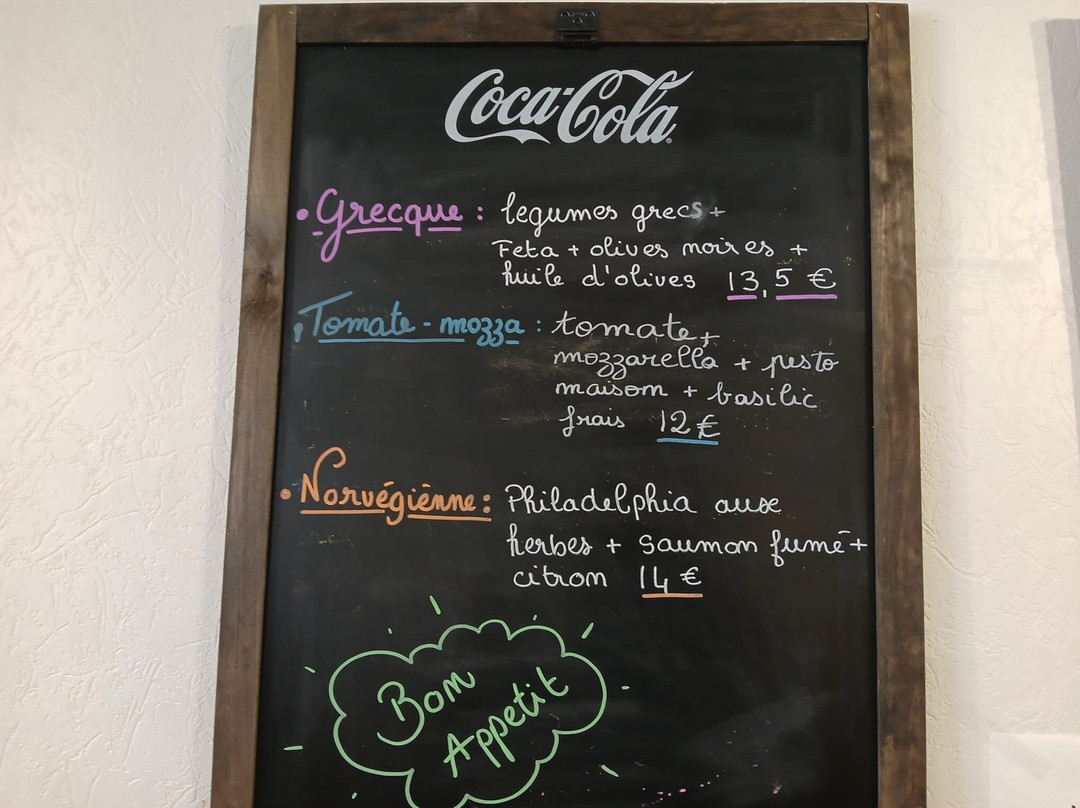 Coca-Cola
• Grecque : legumes grecs +
Feta + olives noires +
huile d'olives 13,5 €
• Tomate - mozza : tomate +
mozzarella + pesto
maison + basilic
frais 12 €
• Norvégiènne : Philadelphia aux
herbes + saumon fumé +
citron 14 €
Bon
Appetit